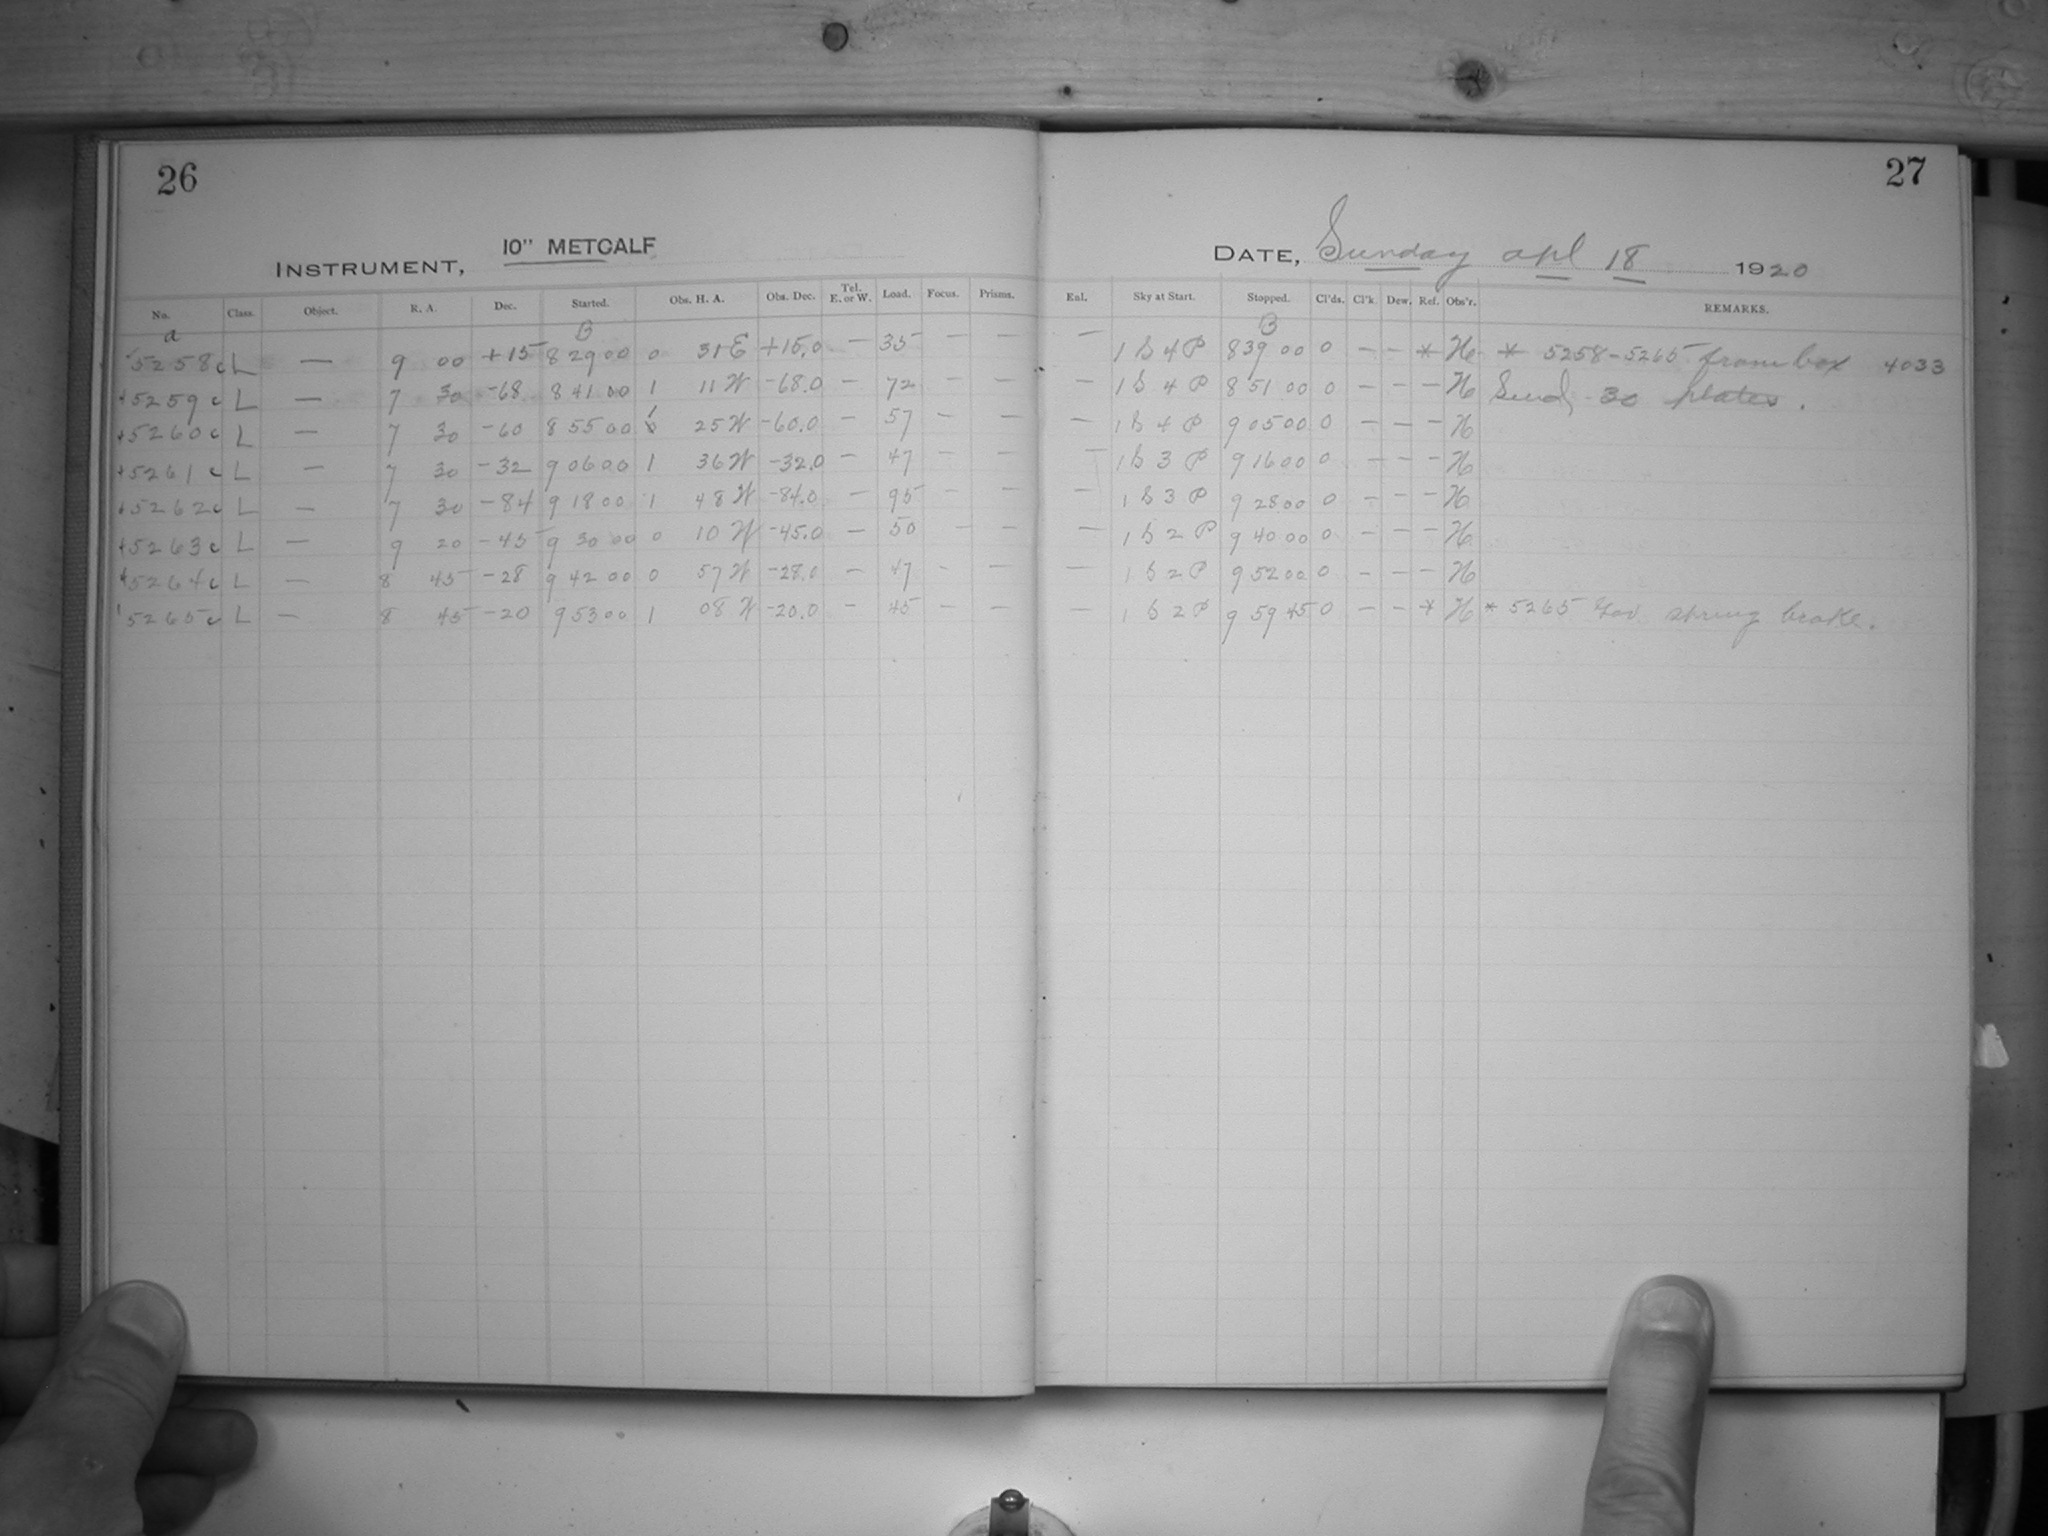 26
INSTRUMENT, 10" METCALF
No. Class. Object. R. A. Dec. Started. Obs. H. A. Obs. Dec. Tel. E. or W. Load. Focus. Prisms.
a B
5258c L — 9 00 +15 8 29 00 0 31 E +15.0 — 35 — —
5259c L — 7 30 -68 8 41 00 1 11 W -68.0 — 72 — —
5260c L — 7 30 -60 8 55 00 1 25 W -60.0 — 57 — —
5261c L — 7 30 -32 9 06 00 1 36 W -32.0 — 47 — —
5262c L — 7 30 -84 9 18 00 1 48 W -84.0 — 95 — —
5263c L — 9 20 -45 9 30 00 0 10 W -45.0 — 50 — —
5264c L — 8 45 -28 9 42 00 0 57 W -28.0 — 47 - —
5265c L — 8 45 -20 9 53 00 1 08 W -20.0 — 45 — —
27
DATE, Sunday apl 18 1920
Enl. Sky at Start. Stopped. Cl'ds. Cl'k. Dew. Ref. Obs'r. REMARKS.
B
— 1 S 4 P 8 39 00 0 — — * H * 5258-5265 from box 4033
— 1 S 4 P 8 51 00 0 — — — H Send 30 plates.
— 1 S 4 P 9 05 00 0 — — — H
— 1 S 3 P 9 16 00 0 — — — H
— 1 S 3 P 9 28 00 0 — — — H
— 1 S 2 P 9 40 00 0 — — — H
— 1 S 2 P 9 52 00 0 — — — H
— 1 S 2 P 9 59 45 0 — — * H * 5265 spring broke.